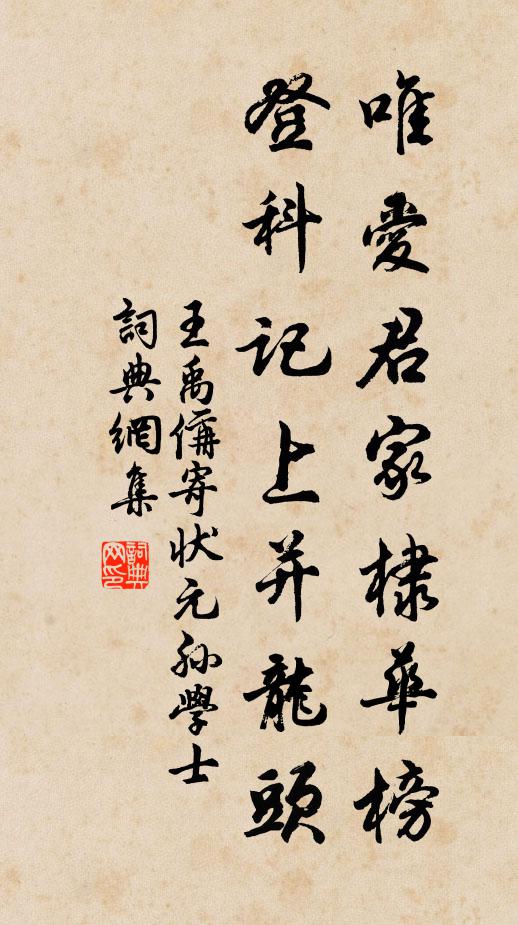 唯愛君家棣華榜
登科記上并龍頭
王禹偁寄狀元孫學士
詞典網集
詞典網印